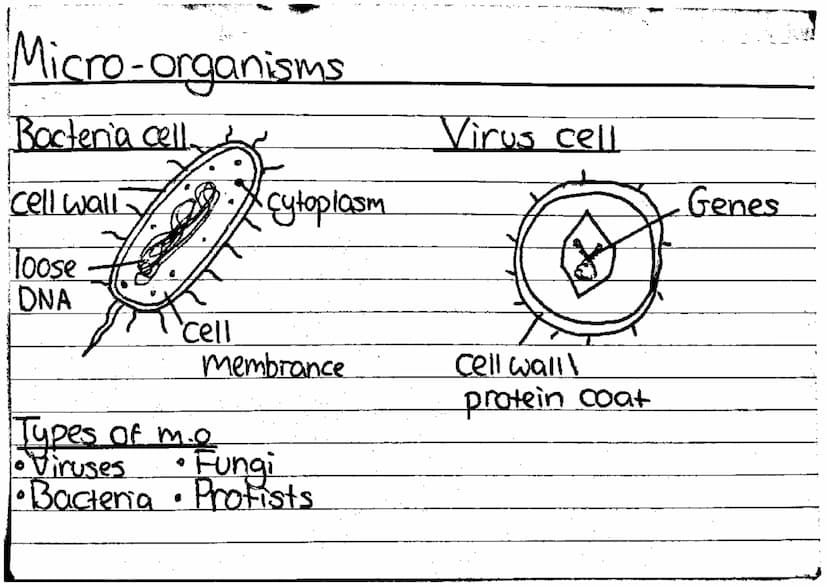 Micro-organisms
Bacteria cell
Virus cell
cell wall
cytoplasm
Genes
loose
DNA
cell
membrance
cell wall\
protein coat
Types of m.o
• Viruses • Fungi
• Bacteria • Protists